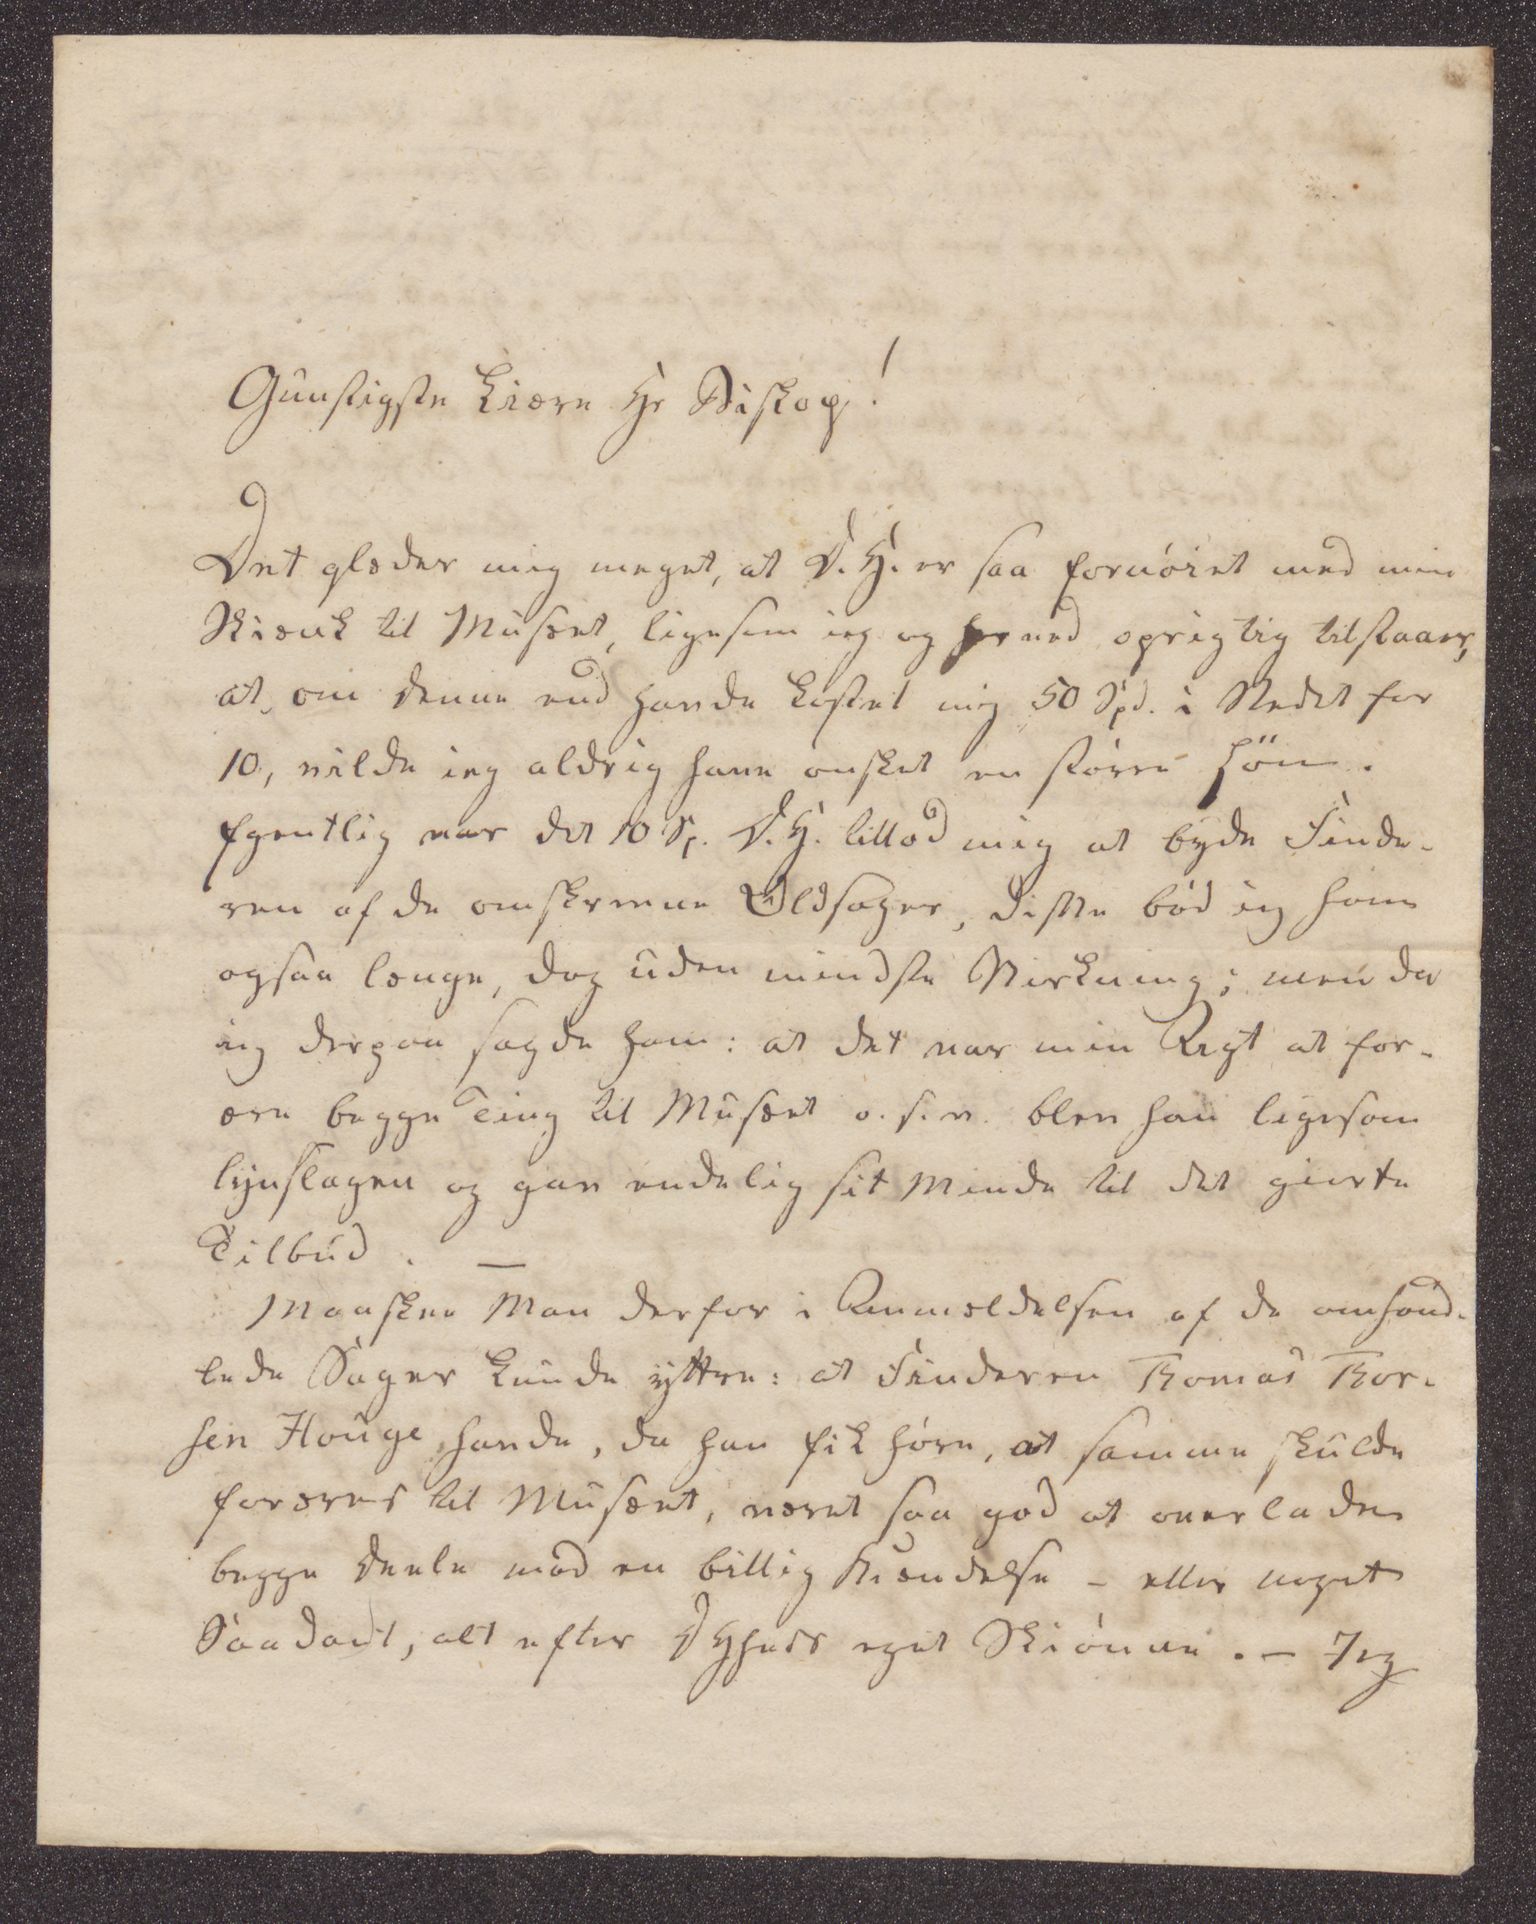 Gunstigste kiære Hr Biskop!
Det glæder mig meget, at D. H. er saa fornöiet med min
Skiænk til Musæet, ligesom ieg og herved oprigtig tilstaaer,
at, om denne end havde kostet mig 50 Spd. i Stedet for
10, vilde ieg aldrig have ønsket en större Lön.
Egentlig var det 10 Sp. D. H. tillod mig at byde Finde-
ren af de omskrevne Oldsager, disse bød ieg ham
ogsaa længe, dog uden mindste Virkning; men da
ieg derpaa sagde ham: at det var min Agt at for-
ære begge Ting til Musæet o. s. v. blev han ligesom
lynslagen og gav endelig sit Minde til det giorte
Tilbud. —
Maaskee Man derfor i Anmældelsen af de omhand-
lede Sager kunde yttre: at Finderen Thomas Thor-
sen Houge havde, da han fik høre, at samme skulde
foræres til Musæet, været saa god at overlade
begge Deele mod en billig Kiendelse – eller noget
Saadant, alt efter D Hheds eget Skiönne. – Jeg